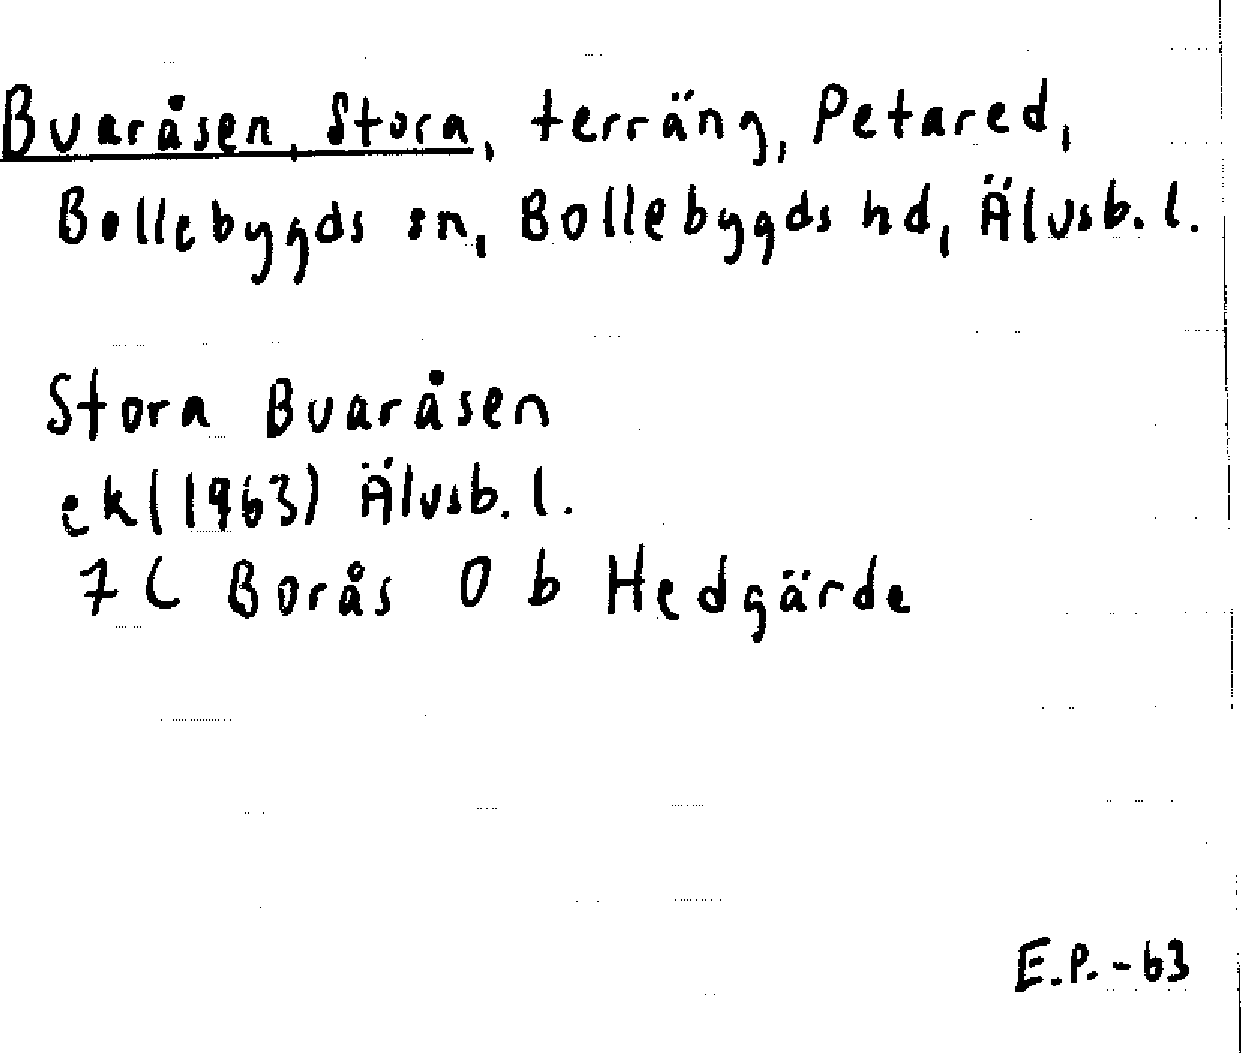 Buaråsen, Stora, terräng, Petared,
Bollebygds sn, Bollebygds hd, Älvsb. l.
Stora Buaråsen
ek (1963) Älvsb. l.
7 C Borås 0 b Hedgärde
E.P. - 63